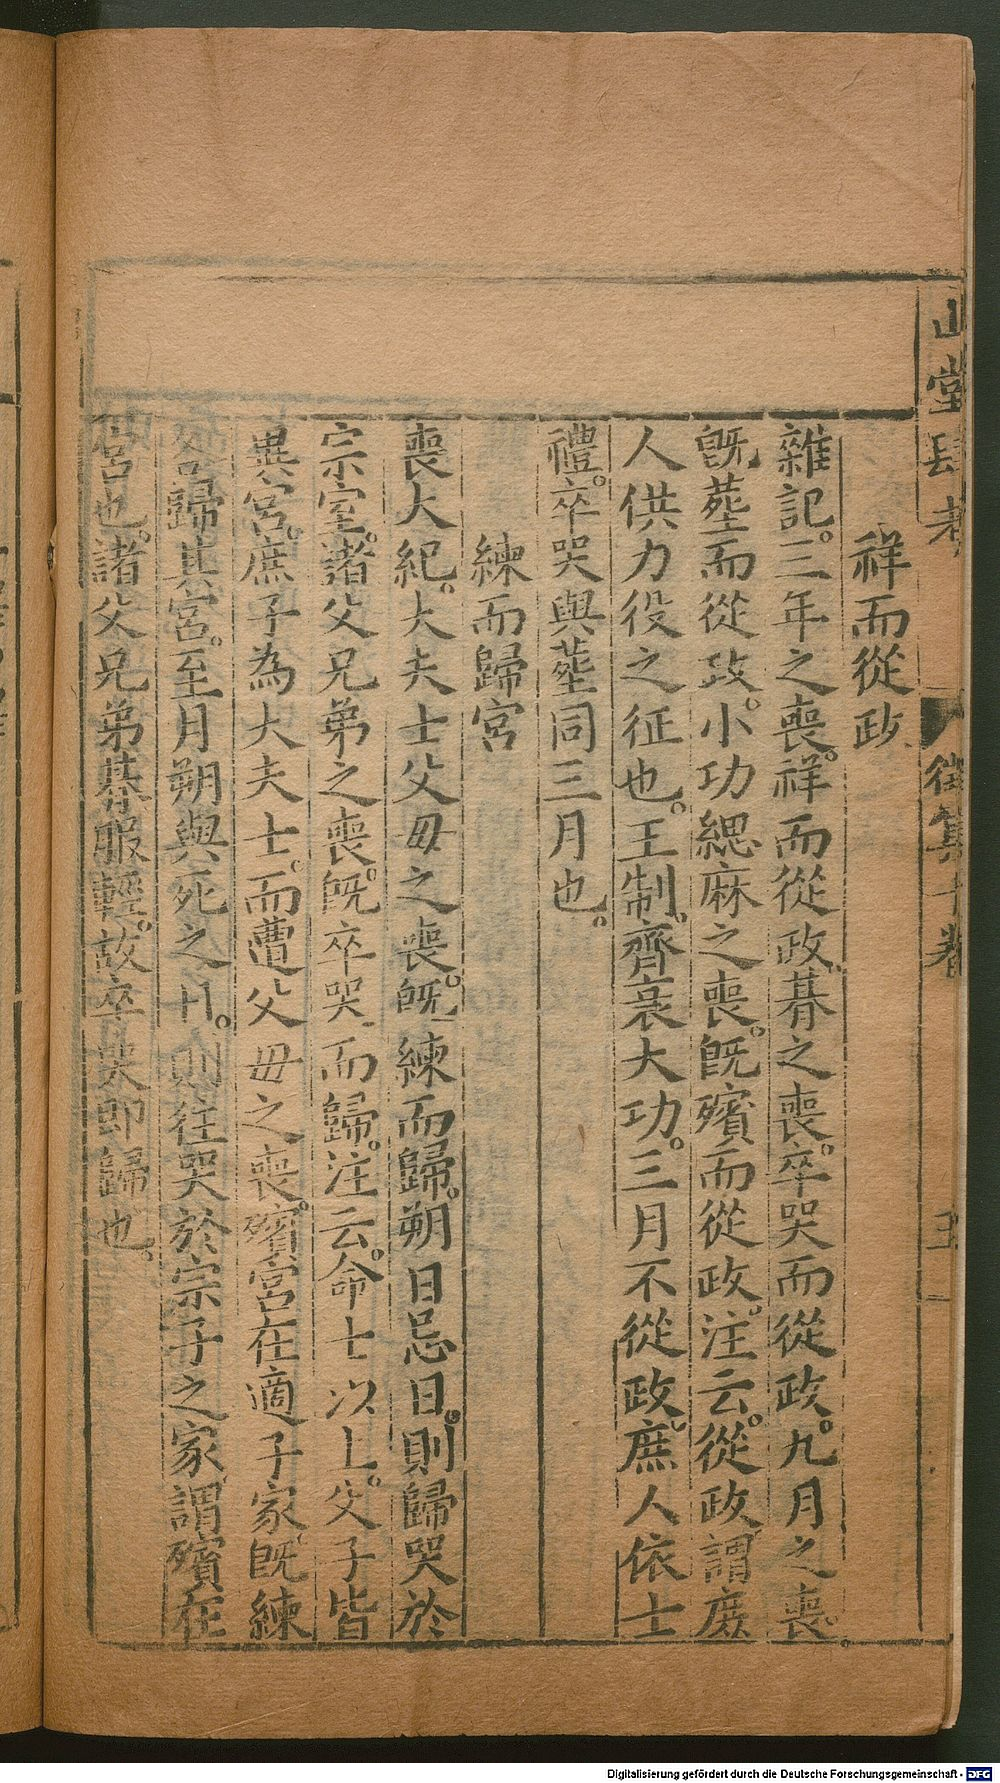 山堂肆考
徵集 十卷
祥而從政
雜記三年之喪祥而從政朞之喪卒哭而從政九月之喪
既塟而從政小功緦麻之喪既殯而從政注云從政謂庶
人供力役之征也王制齊衰大功三月不從政庶人依士
禮卒哭與塟同三月也
練而歸宮
喪大紀大夫士父母之喪既練而歸朔日忌日則歸哭於
宗室諸父兄弟之喪既卒哭而歸注云命士以上父子皆
異宮庶子為大夫士而遭父母之喪殯宮在適子家既練
各歸其宮至月朔與死之日則往哭於宗子之家謂殯在
宮也諸父兄弟朞服輕故卒哭即歸也
Digitalisierung gefördert durch die Deutsche Forschungsgemeinschaft - DFG